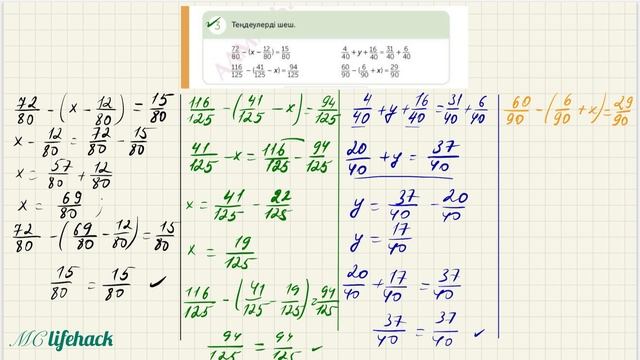 3 Теңдеулерді шеш.
72/80 − (x − 12/80) = 15/80
4/40 + y + 16/40 = 31/40 + 6/40
116/125 − (41/125 − x) = 94/125
60/90 − (6/90 + x) = 29/90
72/80 − (x − 12/80) = 15/80
x − 12/80 = 72/80 − 15/80
x = 57/80 + 12/80
x = 69/80 ;
72/80 − (69/80 − 12/80) = 15/80
15/80 = 15/80 ✓
116/125 − (41/125 − x) = 94/125
41/125 − x = 116/125 − 94/125
x = 41/125 − 22/125
x = 19/125
116/125 − (41/125 − 19/125) = 94/125
94/125 = 94/125 ✓
4/40 + y + 16/40 = 31/40 + 6/40
20/40 + y = 37/40
y = 37/40 − 20/40
y = 17/40
20/40 + 17/40 = 37/40
37/40 = 37/40 ✓
60/90 − (6/90 + x) = 29/90
MC lifehack